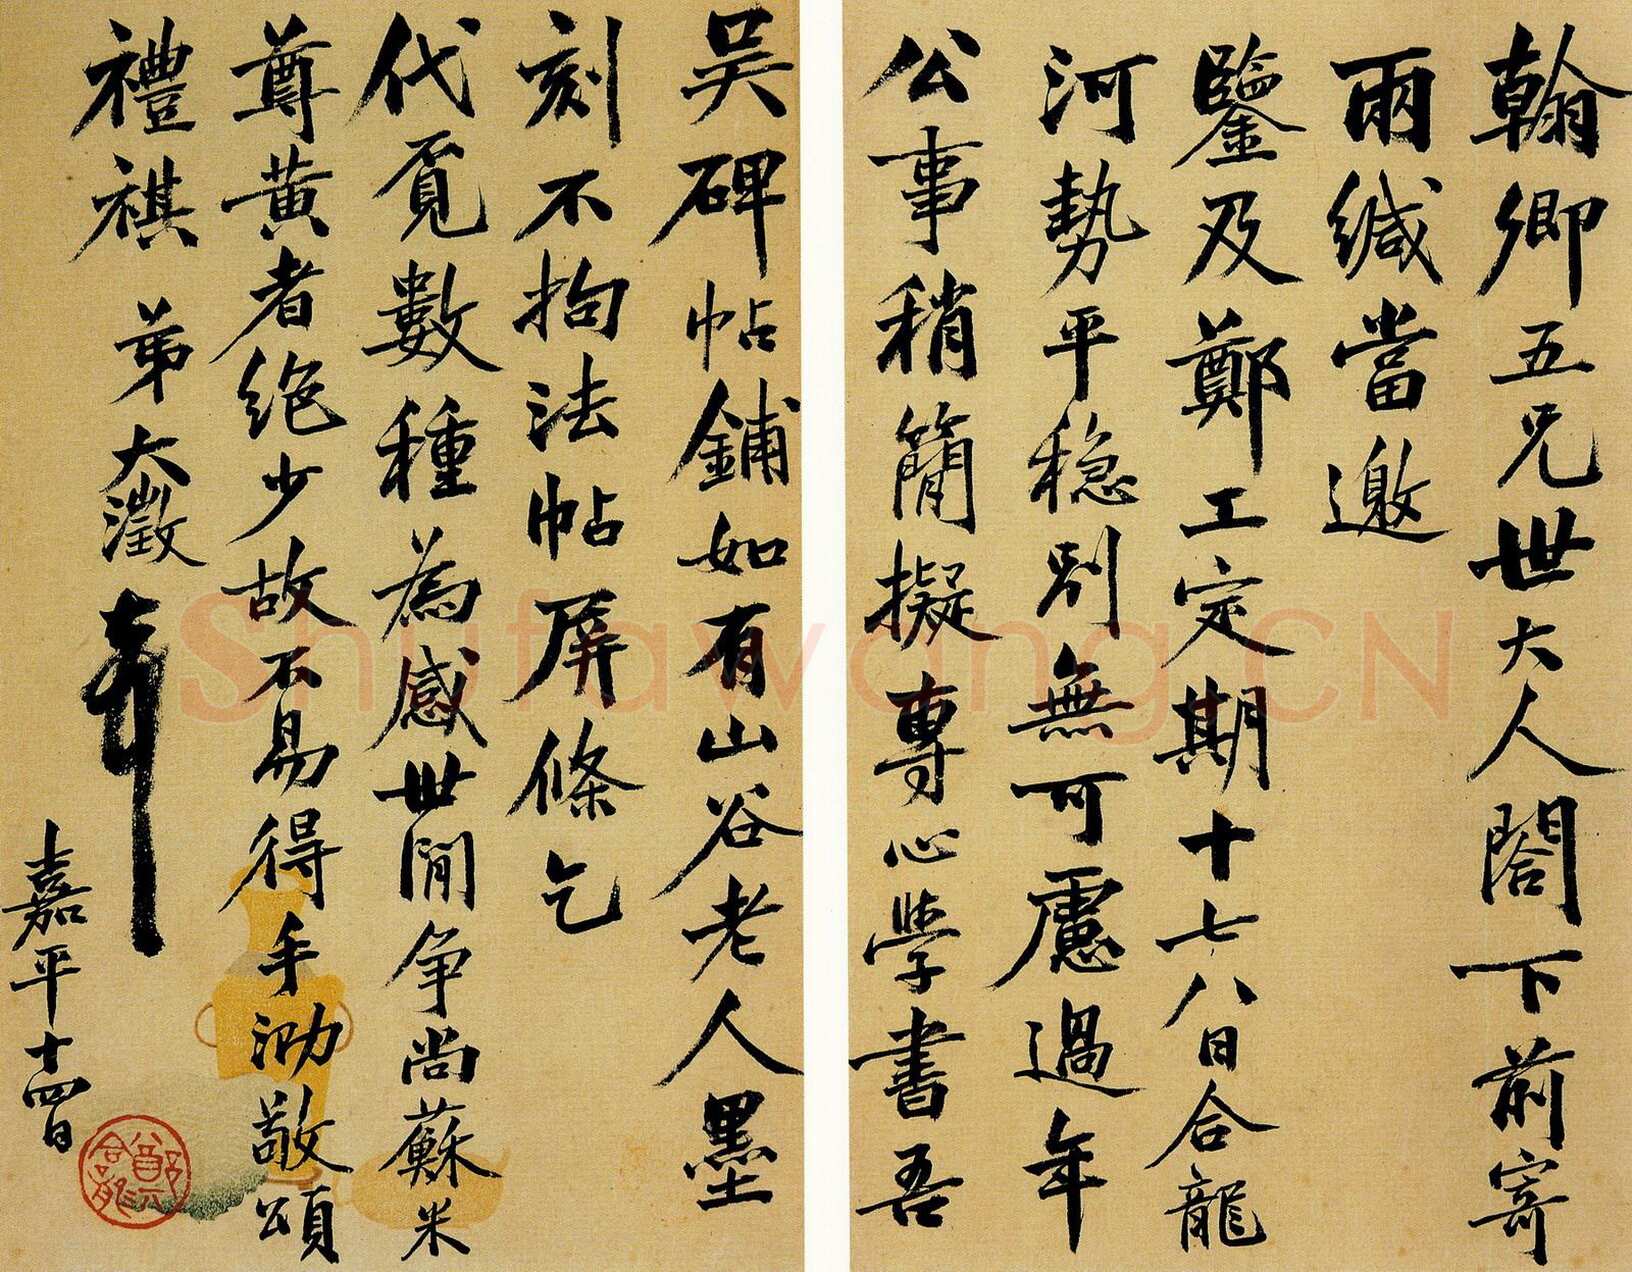 翰卿五兄世大人閣下前寄
兩緘當邀
鑒及鄭工定期十七八日合龍
河勢平穩別無可慮過年
公事稍簡擬專心學書吾
吳碑帖鋪如有山谷老人墨
刻不拘法帖屏條乞
代覓數種為感世間爭尚蘇米
尊黃者絕少故不易得手泐敬頌
禮祺 弟大澂頓首
嘉平十四日
鄭州合龍
Shufawang.CN